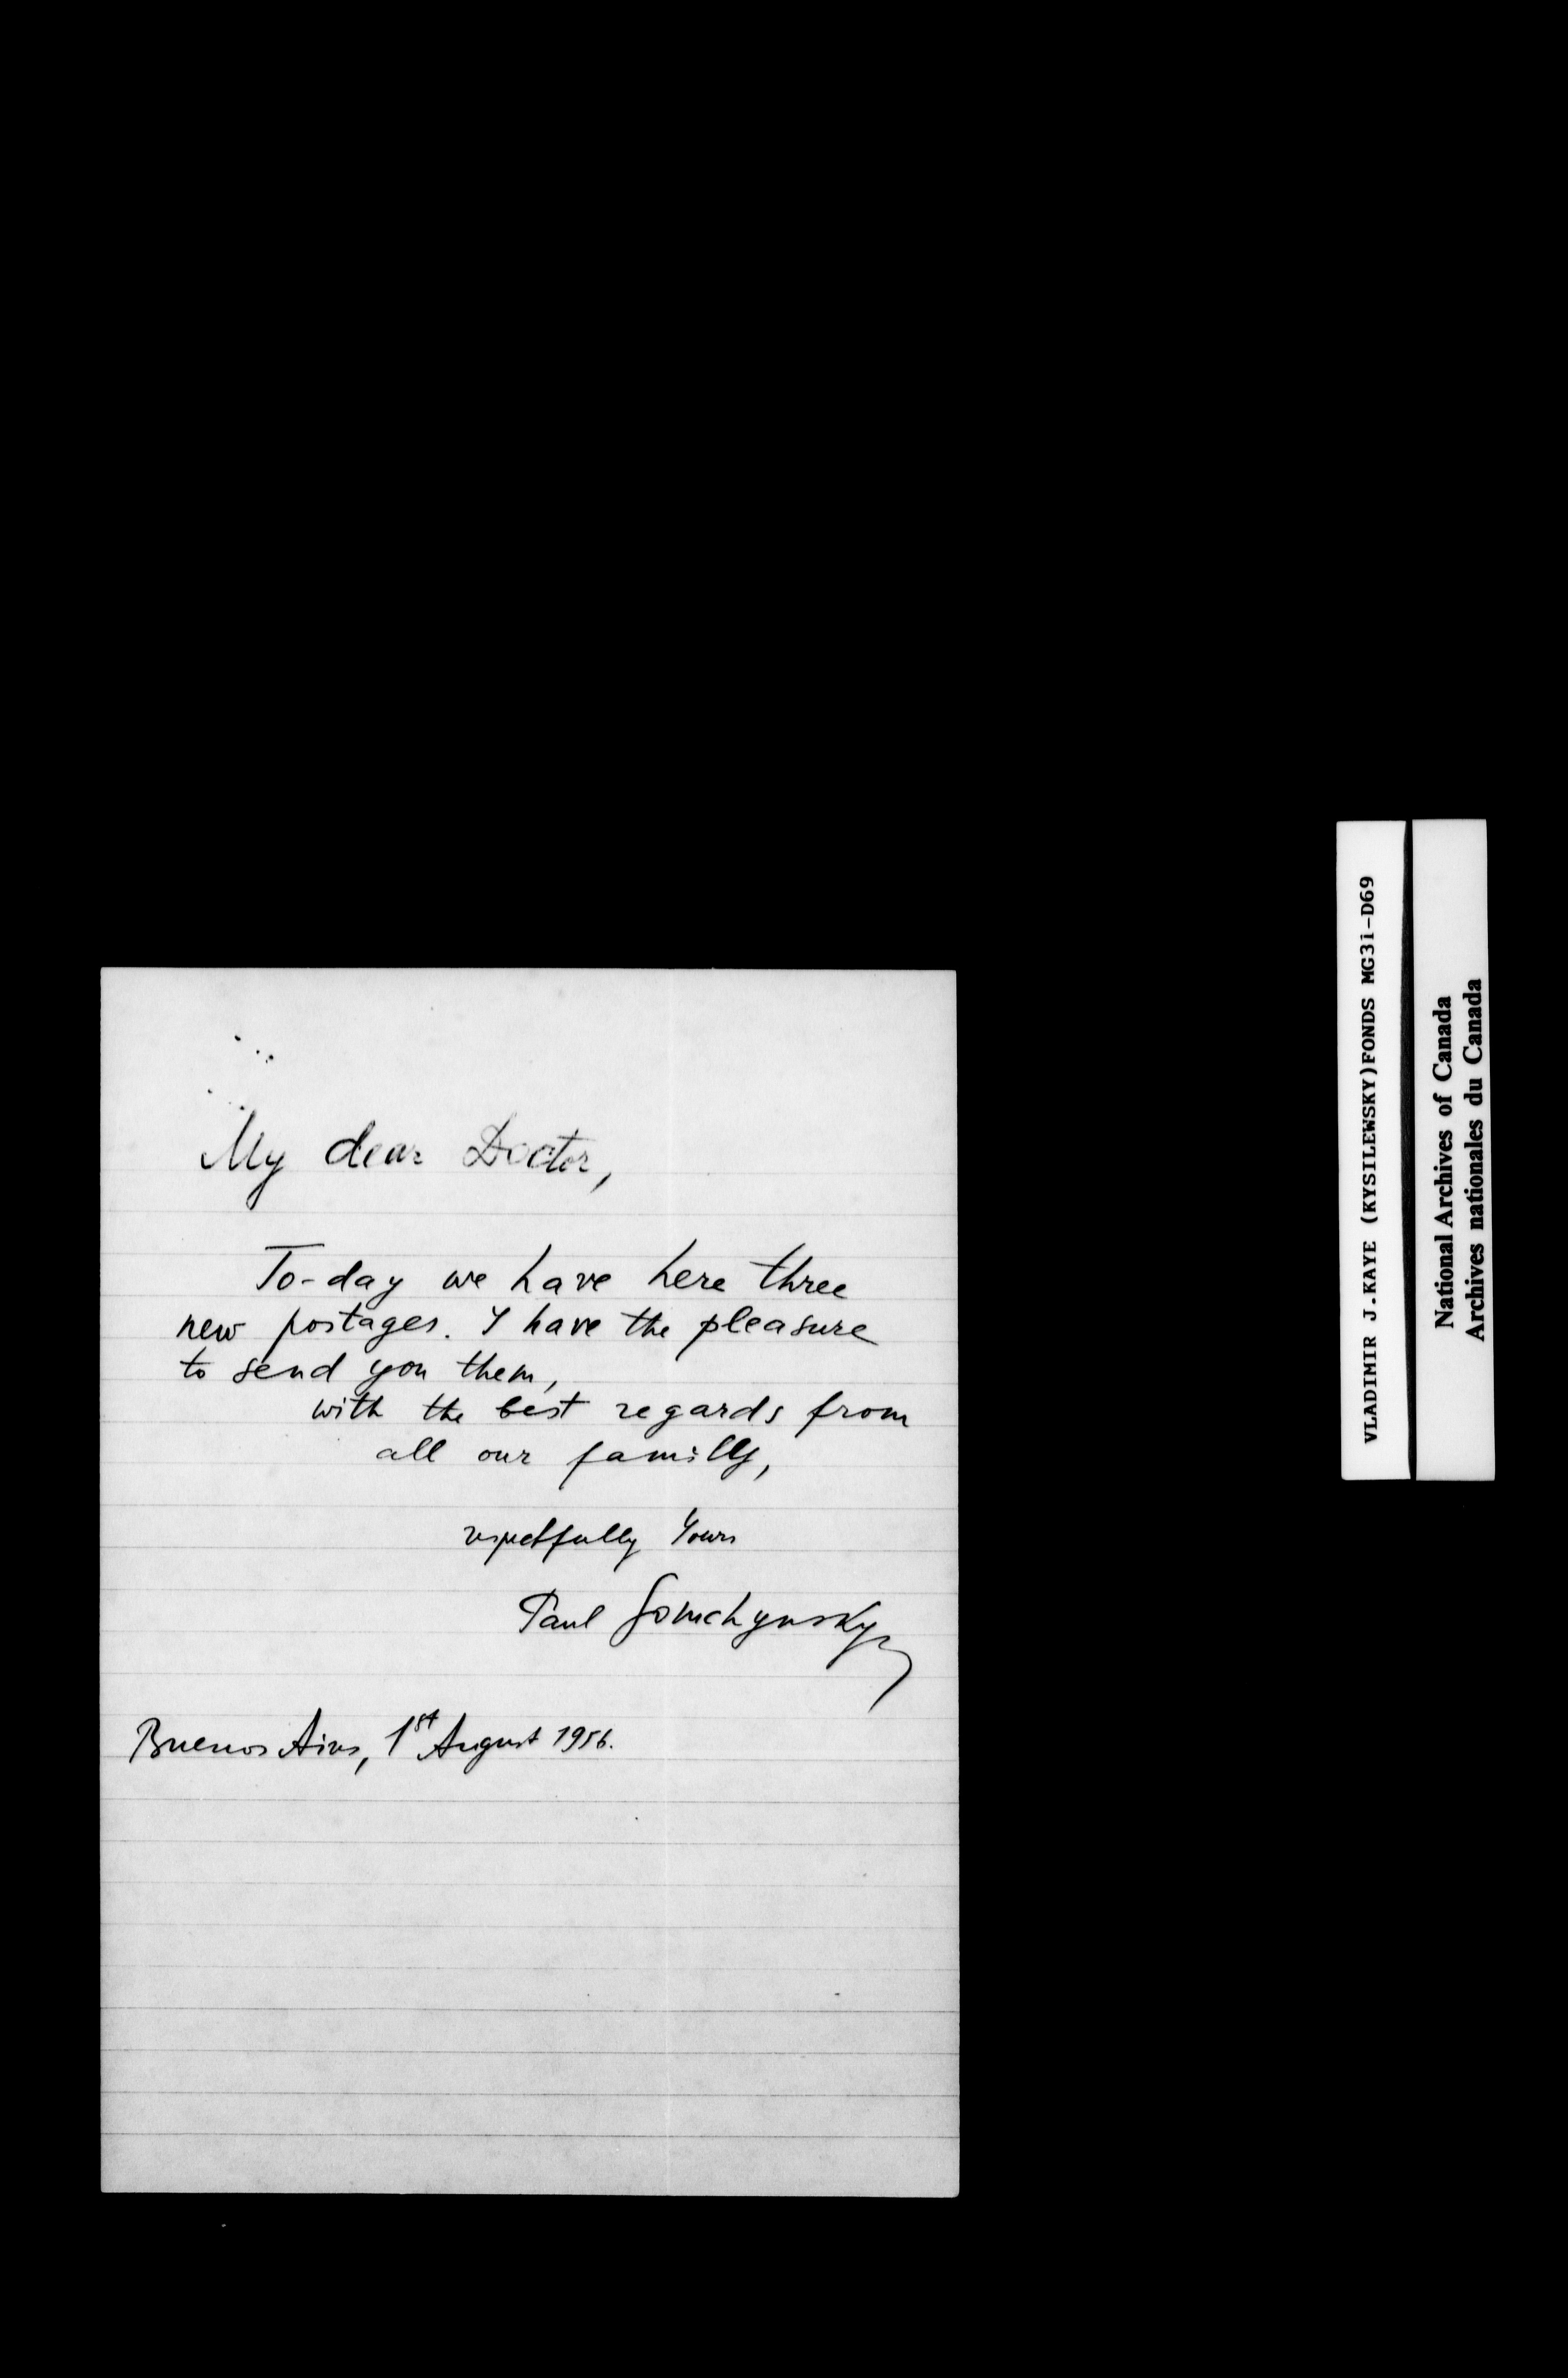 My dear Doctor,
To-day we have here three
new postages. I have the pleasure
to send you them,
with the best regards from
all our familly,
respectfully Yours
Paul
Buenos Aires, 1st August 1956.
VLADIMIR J.KAYE (KYSILEWSKY)FONDS MG31-D69
National Archives of Canada
Archives nationales du Canada